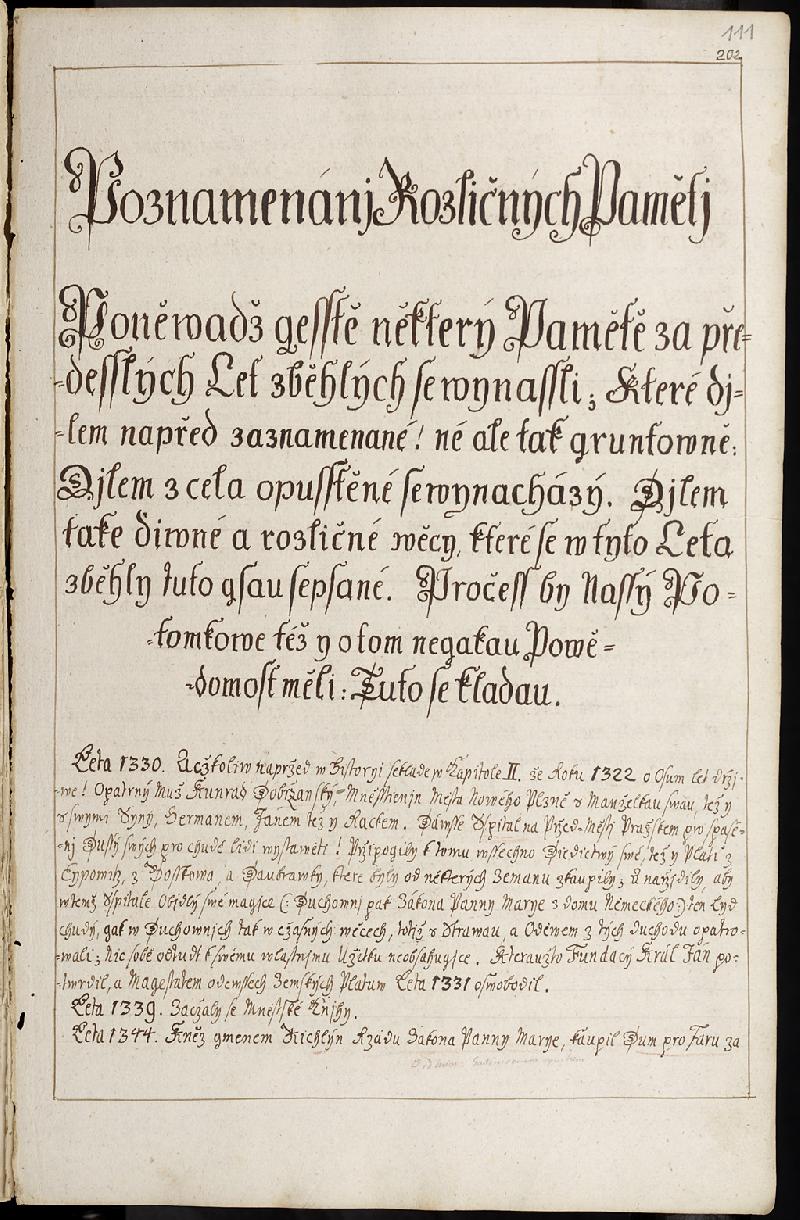 111
202
Poznamenánj Rozličných Pamětj
Poněwadž gesstě některý Pamětě za pře-
-desslých Let zběhlých se wynassli; Které dj-
-lem napřed zaznamenané! né ale tak gruntowně:
Djlem z cela opusstěné se wynacházý. Djlem
take diwné a rozličné wěcy, které se w tyto Leta
zběhly tuto gsau sepsané. Pročess by Nassý Po=
-tomkowe též y o tom negakau Powě=
-domost měli: Tuto se kladau.
Léta 1330. Ačžkoliw napržed w Hystorgi se klade w Kapitole II. že Roku 1322 o Osum let držj-
-we! Opatrný Muž Kunrad Dobržanský, Mněsstienjn Města Nowého Plzně s Manželkau swau, též y
s swými Syny, Hermanem, Janem též y Raclem. Dawsse Sspital na Pržed-Městj Pražskem pro spase-
-nj Dussý swých pro chudé lidi wystawěti! Pržipogily k tomu wssechno Diedictwý swé, též y Platj z
z Dosskowa, a Daubrawky, ktere byly od někteřých Zemanu zkaupily; a naržjdily, aby
w temž Sspitale Obydlý swé magjce (: Duchownj pak Zákona Panny Marye z domu Německého:) ten Lyd
chudý, gak w Duchownjch tak w cžasných wěcech, totiž s Strawau, a Oděwem z tých duchodu opatro-
-wali; nic sobě odtud k swému wlastnjmu Užitku neobsahugjce. Kteraužto Fundacý Král Jan po-
-twrdil, a Magestátem odewssech Zemských Platuw Léta 1331 oswobodil.
Léta 1339. Zacžaly se Městské Knjhy.
Léta 1344. Kněz gmenem Kichlyn Ržádu Zákona Panny Marye, kaupil Dum pro Faru za